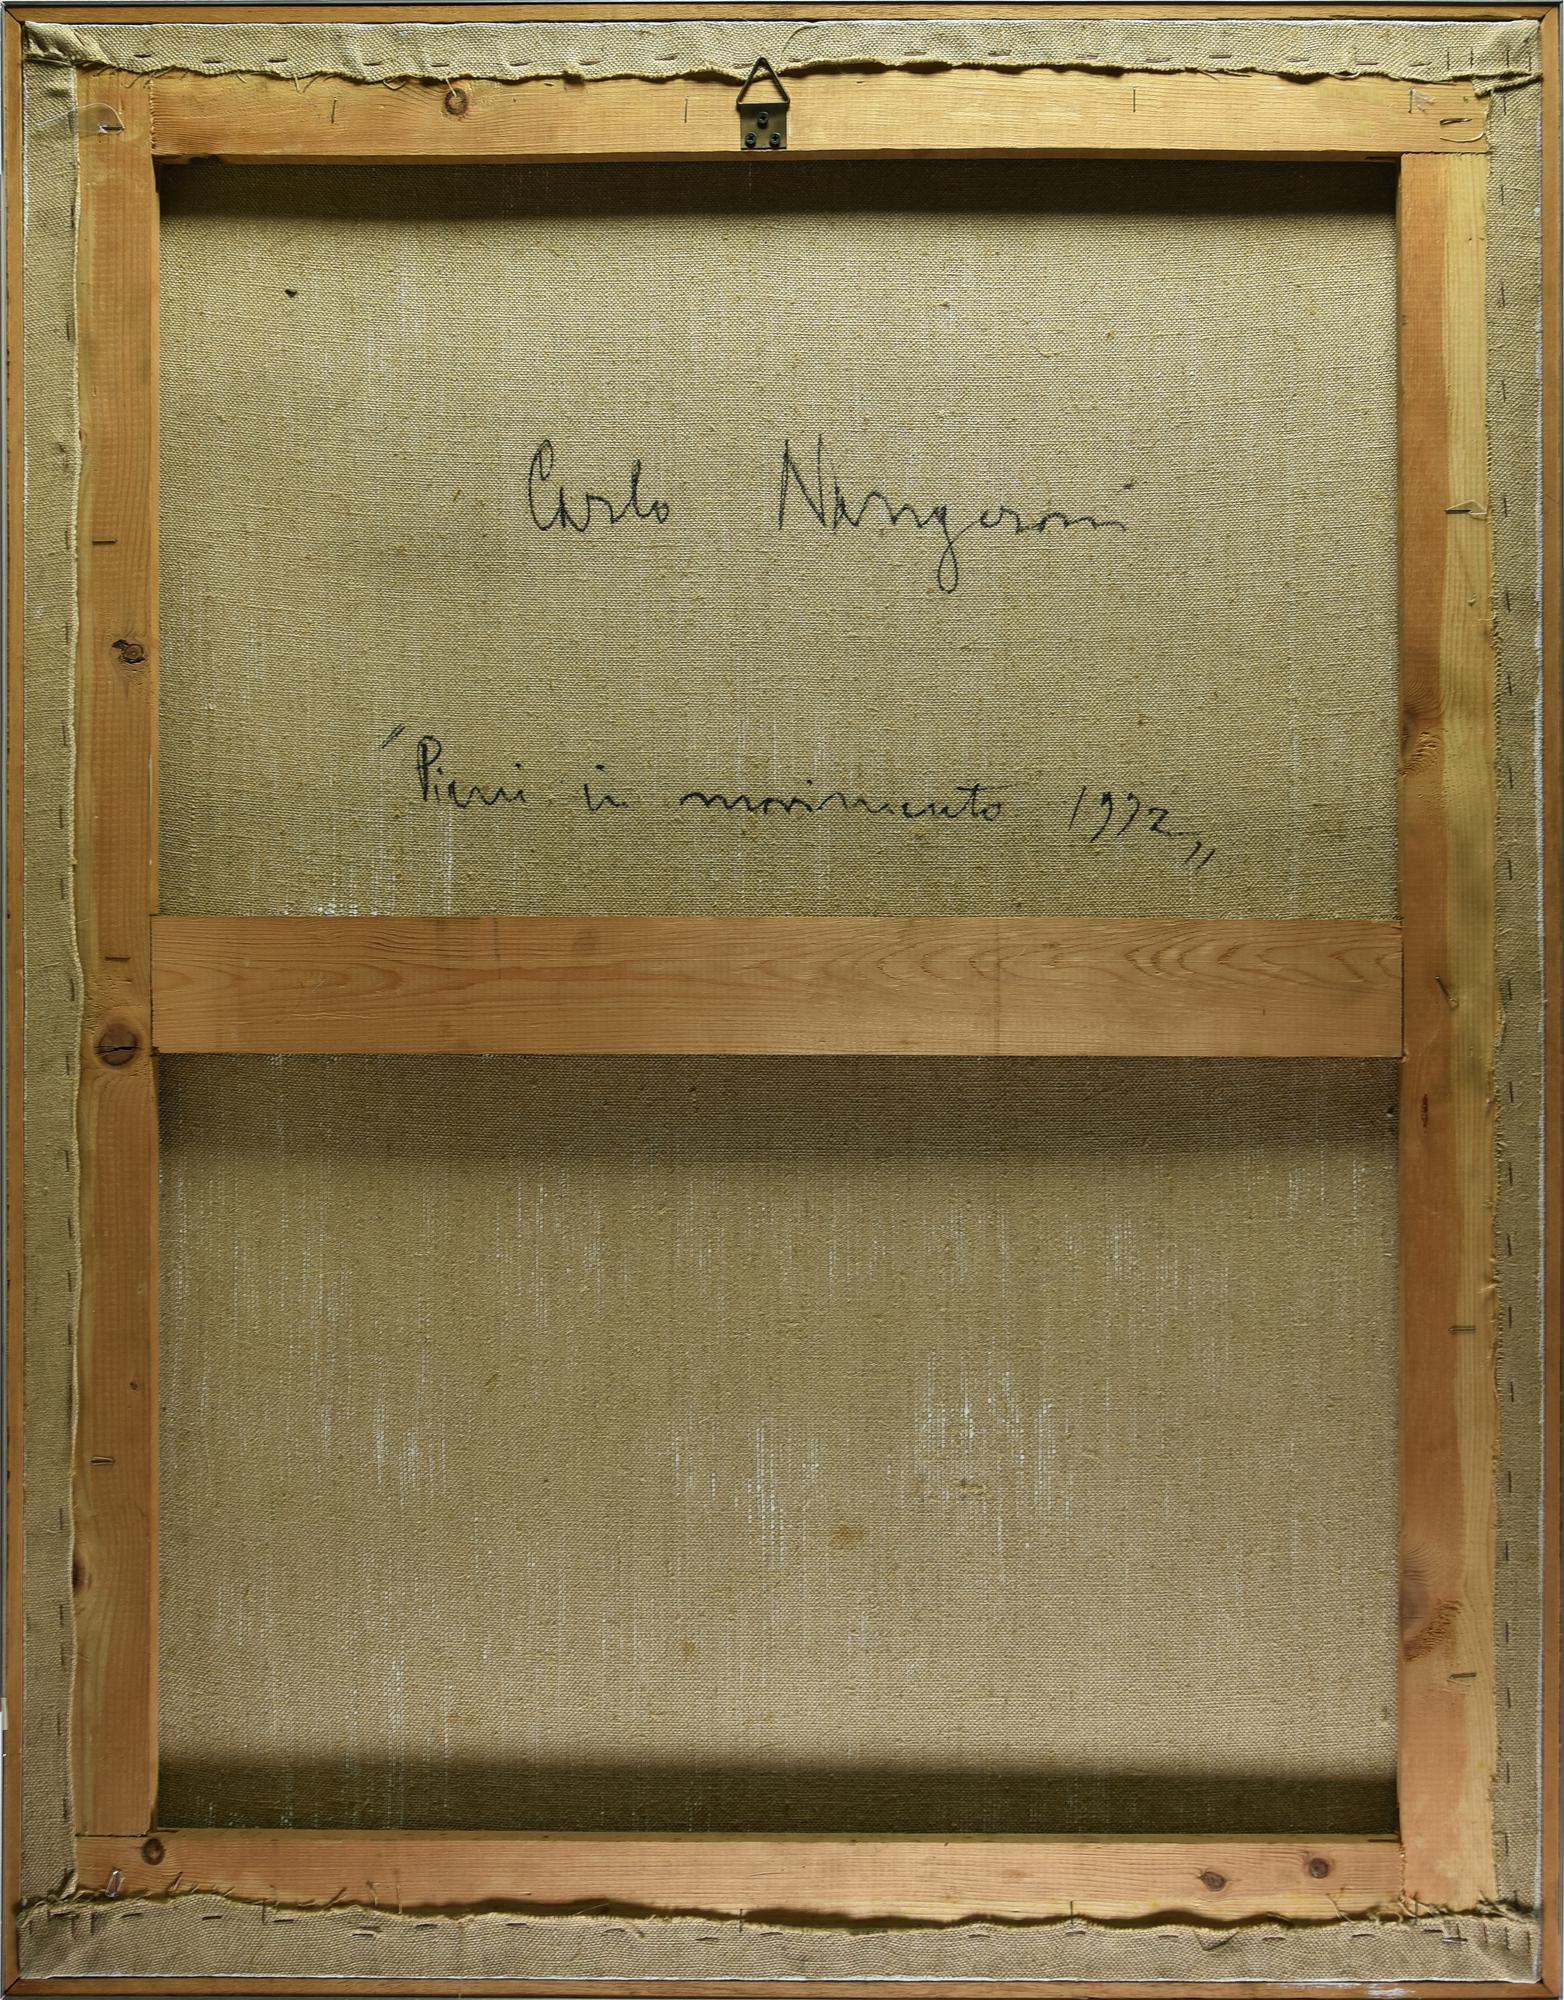 Carlo Nangeroni
"Piani in movimento 1972"